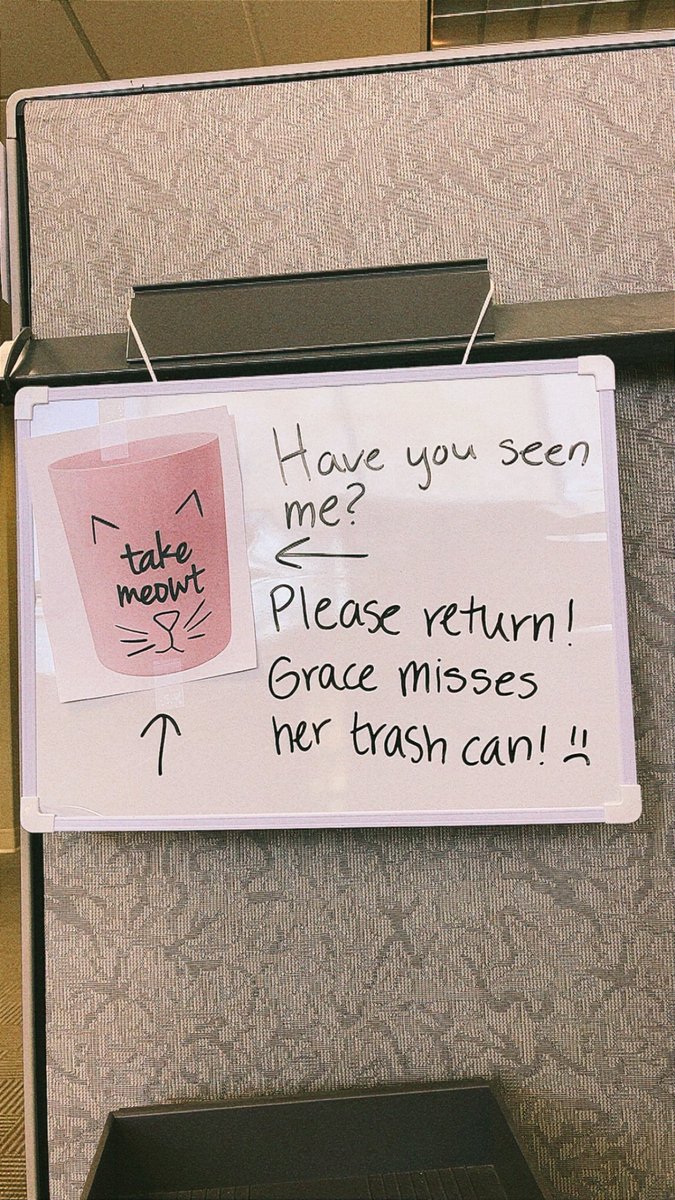 take
meowt
Have you seen
me?
Please return!
Grace misses
her trash can!